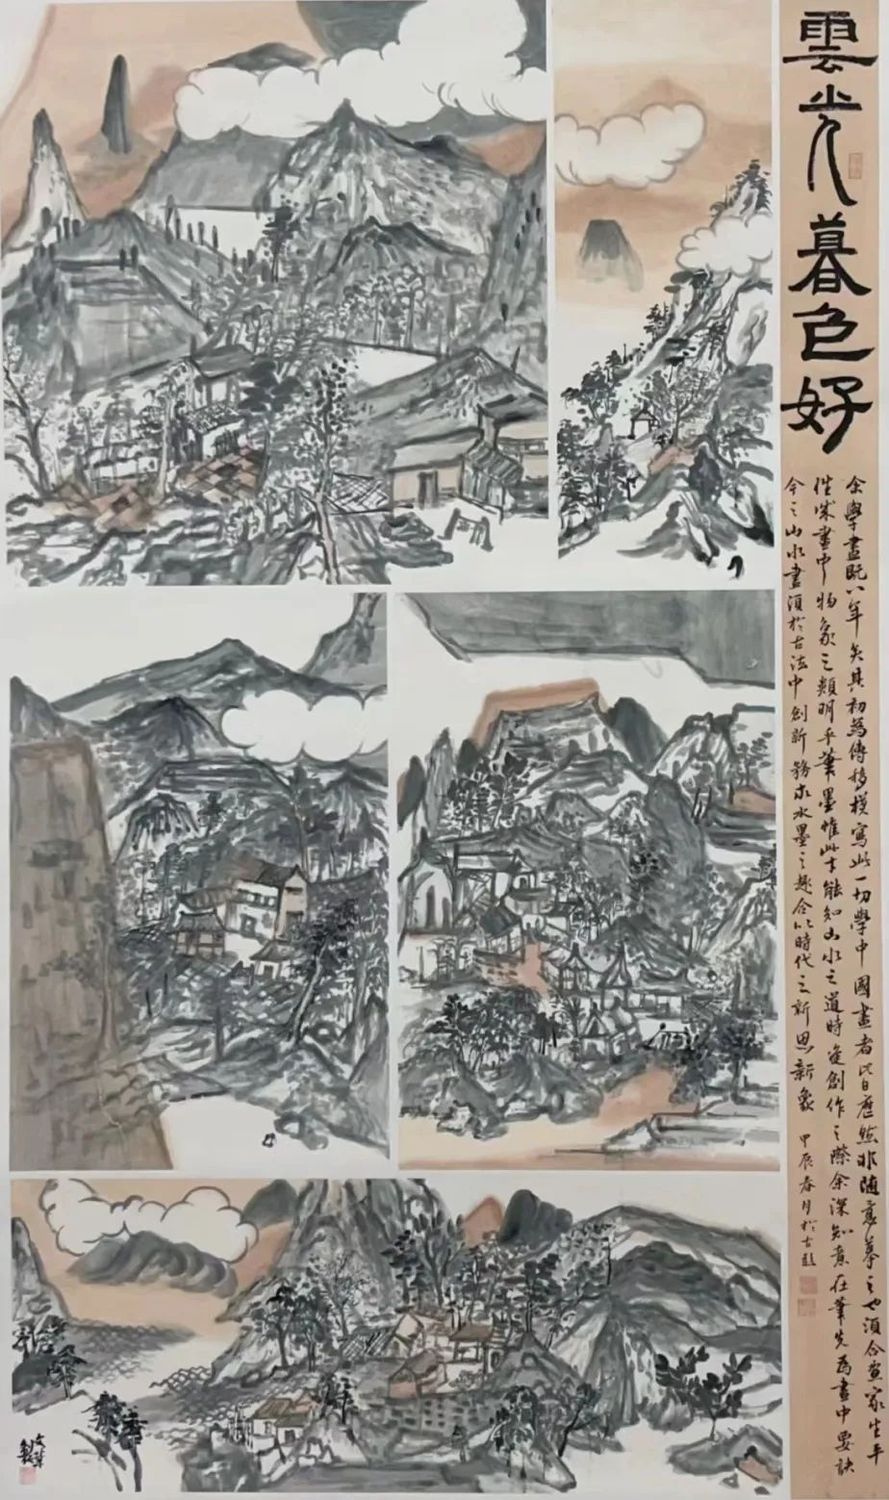 雲光暮色好
余學畫既八年矣其初為傳移模寫此一切學中國畫者皆歷然非隨意摹之也須合畫家生平
性味畫中物象之類明乎筆墨惟此才能知山水之道時從創作之際余深知意在筆先為畫中要訣
今之山水畫須於古法中創新務求水墨之趣合以時代之新思新象
甲辰春月於古